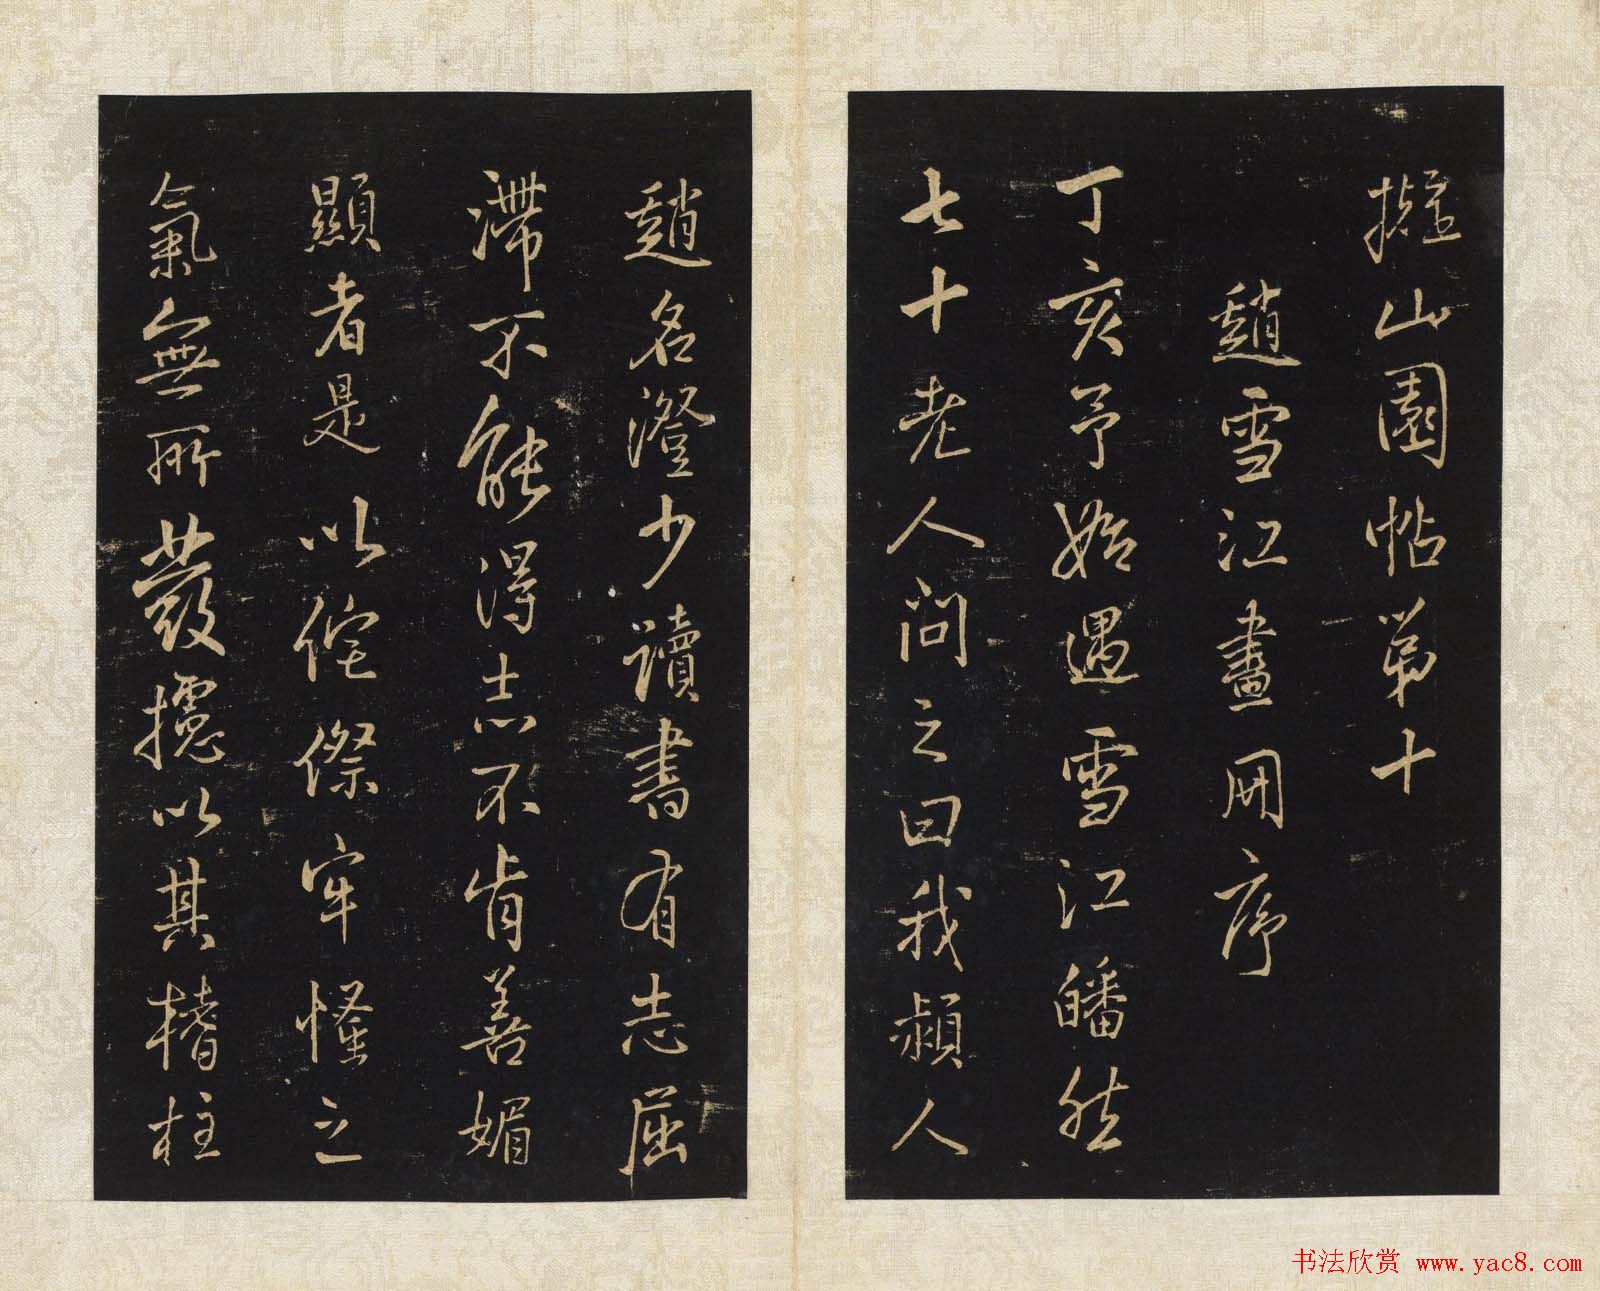 擬山園帖第十
趙雪江畫冊序
丁亥予始遇雪江皤然
七十老人問之曰我潁人
趙名澄少讀書有志屈
滯不能得志不肯善媚
顯者是以侘傺牢慅之
氣無所發攄以其榰柱
书法欣赏 www.yac8.com